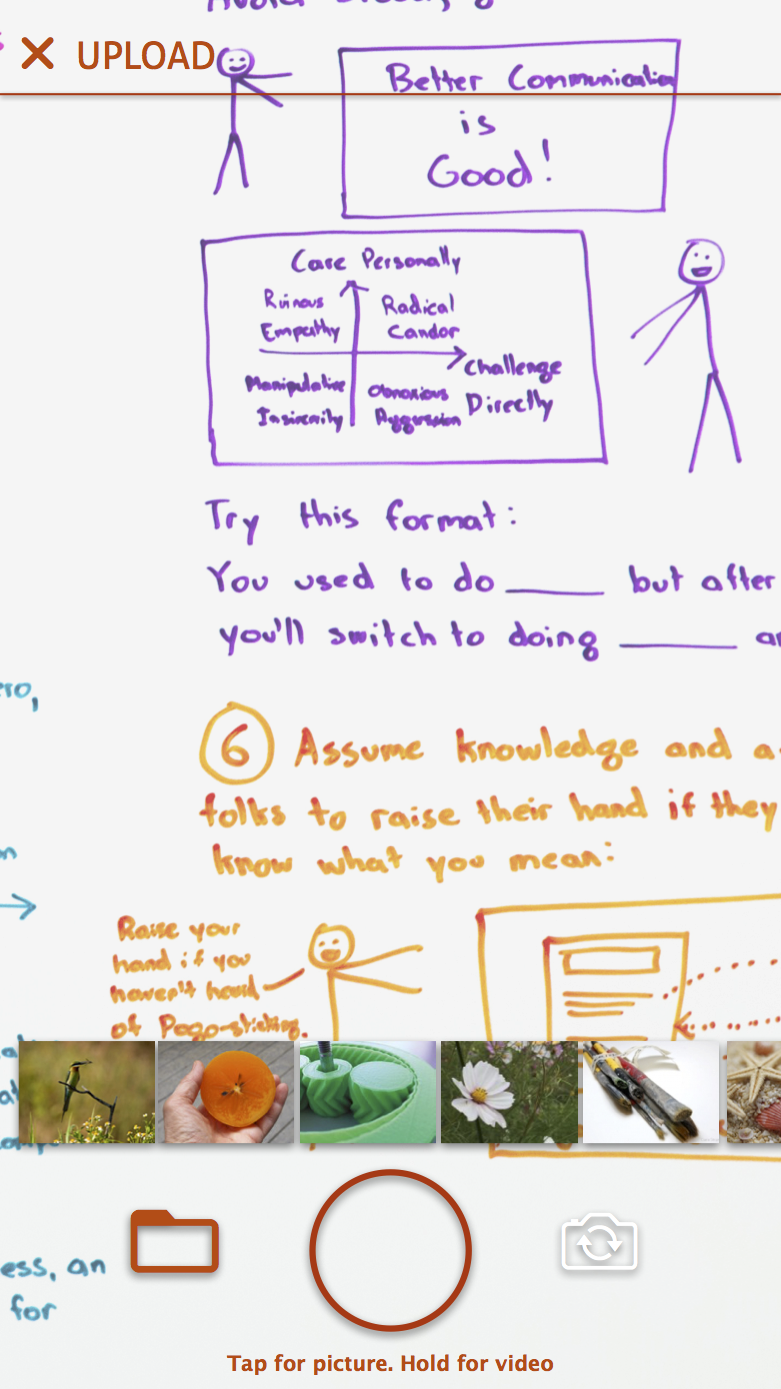 UPLOAD
Better Communication
is
Good!
Care Personally
Ruinous
Empathy
Radical
Candor
Challenge
Directly
Manipulative
Insincerity
Obnoxious
Aggression
Try this format:
You used to do ____ but after
you'll switch to doing ____
ero,
6 Assume knowledge and a
folks to raise their hand if they
know what you mean:
Raise your
hand if you
haven't heard
of Pogo-sticking.
ess, an
for
Tap for picture. Hold for video